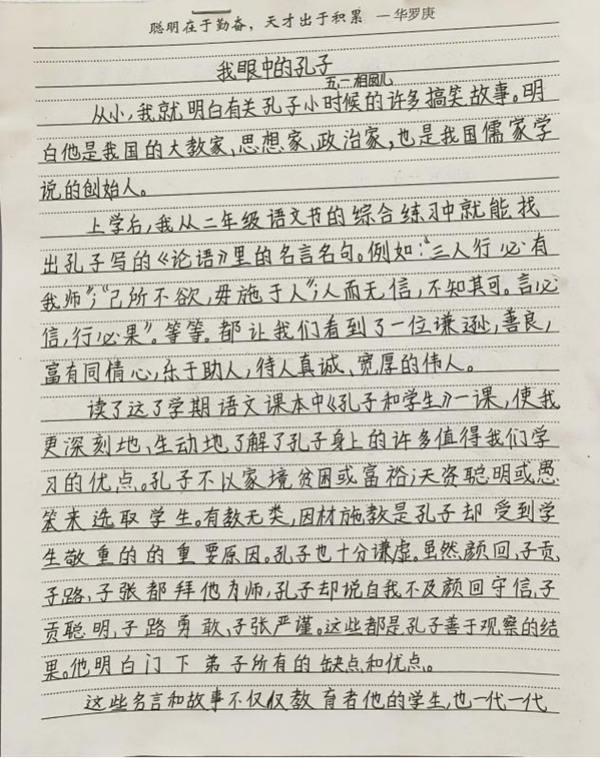 聪明在于勤奋，天才出于积累 —华罗庚
我眼中的孔子
五、一 相园儿
从小，我就明白有关孔子小时候的许多搞笑故事。明
白他是我国的大教家、思想家、政治家，也是我国儒家学
说的创始人。
上学后，我从二年级语文书的综合练习中就能找
出孔子写的《论语》里的名言名句。例如：“三人行必有
我师”；“己所不欲，毋施于人”；人而无信，不知其可。言必
信，行必果”。等等。都让我们看到了一位谦逊，善良，
富有同情心，乐于助人，待人真诚、宽厚的伟人。
读了这了学期语文课本中《孔子和学生》一课，使我
更深刻地、生动地了解了孔子身上的许多值得我们学
习的优点。孔子不以家境贫困或富裕；天资聪明或愚
笨来选取学生。有教无类，因材施教是孔子却受到学
生敬重的的重要原因。孔子也十分谦虚。虽然颜回，子贡，
子路，子张都拜他为师，孔子却说自我不及颜回守信，子
贡聪明，子路勇敢，子张严谨。这些都是孔子善于观察的结
果。他明白门下弟子所有的缺点和优点。
这些名言和故事不仅仅教育者他的学生，也一代一代